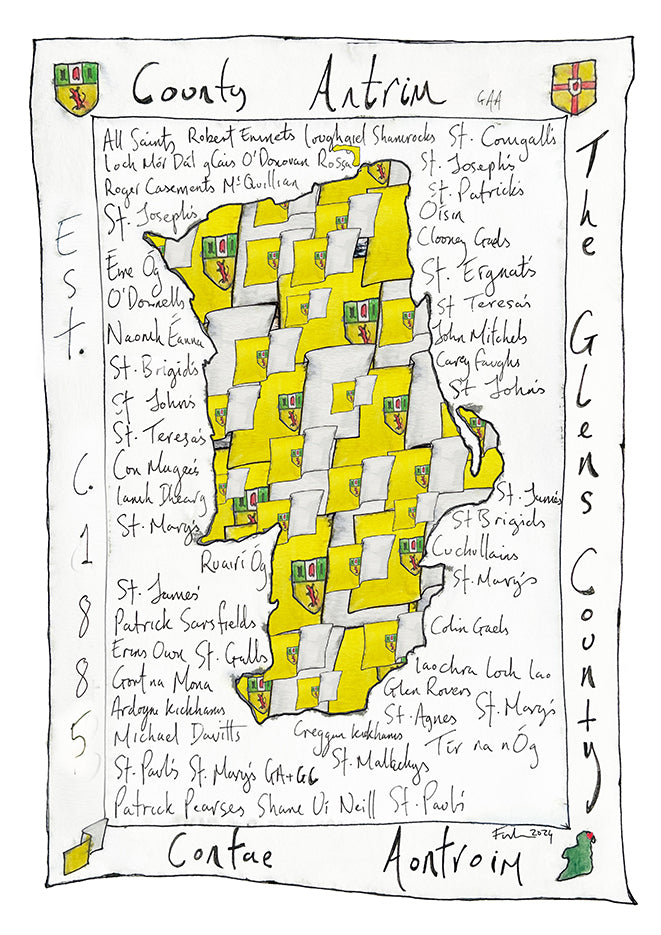 County Antrim GAA
All Saints Robert Emmets Loughgiel Shamrocks St. Comgall's
Loch Mór Dál gCais O'Donovan Rossa
Roger Casements McQuillian
St. Joseph's
Éire Óg
O'Donnells
Naomh Éanna
St. Brigid's
St John's
St. Teresas
Con Magees
Lamh Dhearg
St. Mary's
Ruairí Óg
St. James'
Patrick Sarsfields
Erins Own St. Galls
Gort na Mona
Ardoyne Kickhams
Michael Davitts
St. Paul's St. Mary's GA+GC
Patrick Pearses Shane Uí Neill St. Paul's
St. Joseph's
St. Patrick's
Oisin
Clooney Gaels
St. Ergnat's
St Teresa's
John Mitchels
Carey Faughs
St John's
St. James
St Brigids
Cuchullains
St. Mary's
Colin Gaels
Laochra Loch Lao
Glen Rovers
St. Agnes St. Mary's
Creggan Kickhams
Tír na nÓg
St. Malachys
Est. C. 1885
The Glens County
2024
Contae Aontroim